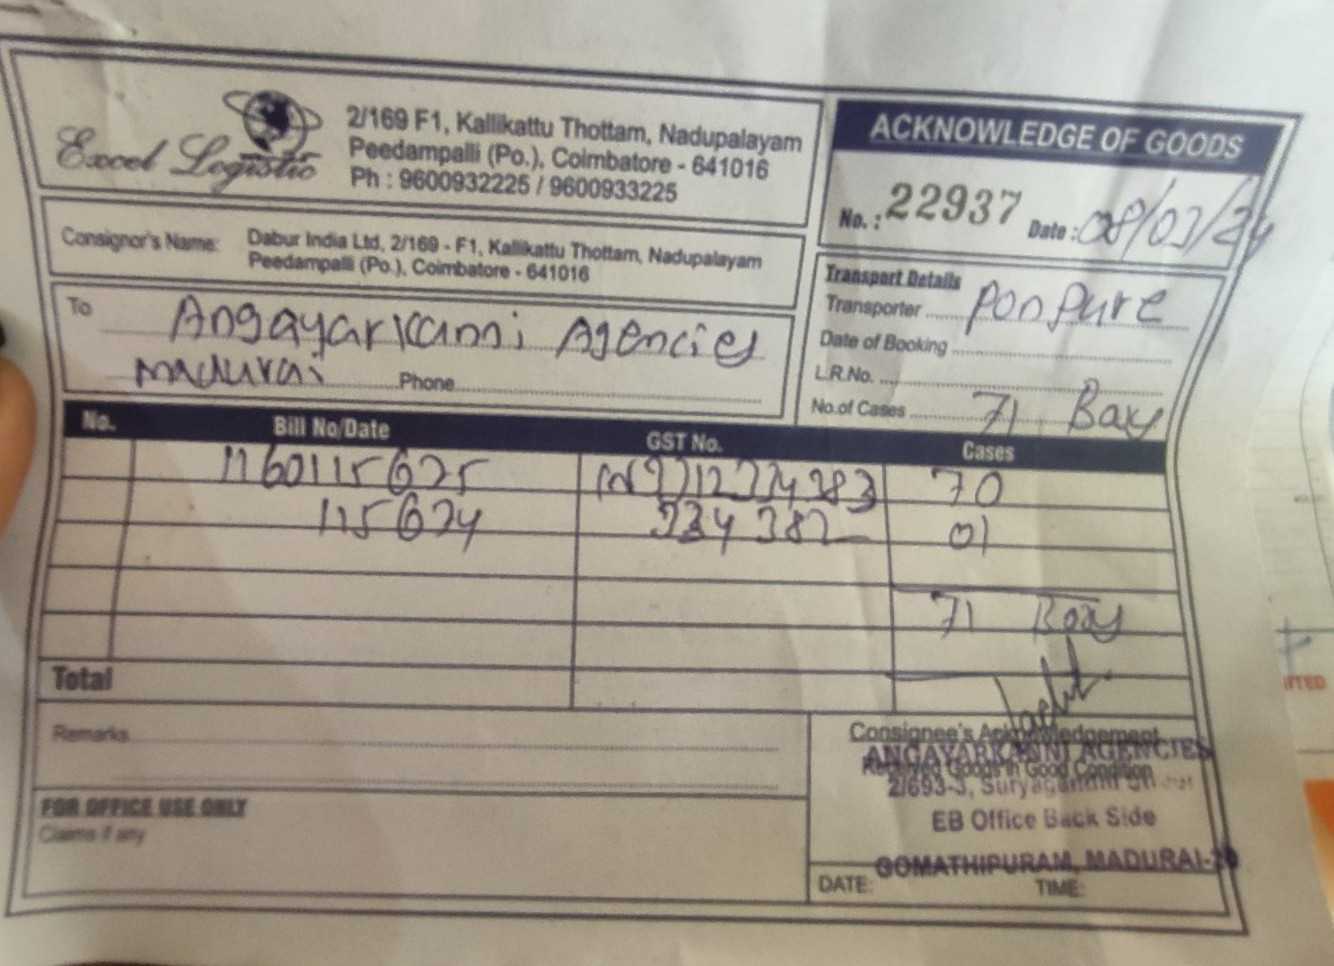 Excel Logistic
2/169 F1, Kallikattu Thottam, Nadupalayam
Peedampalli (Po.), Coimbatore - 641016
Ph : 9600932225 / 9600933225
ACKNOWLEDGE OF GOODS
No. : 22937 Date : 08/03/24
Consignor's Name: Dabur India Ltd, 2/169 - F1, Kallikattu Thottam, Nadupalayam
Peedampalli (Po.), Coimbatore - 641016
To Angayarkanni Agencies
Madurai Phone
Transport Details
Transporter Ponpure
Date of Booking
L.R.No.
No.of Cases 71 Box
No. Bill No/Date GST No. Cases
1160115675 70
115674 01
71 Box
Total
Remarks
FOR OFFICE USE ONLY
Claims if any
Consignee's Acknowledgement
ANGAYARKANNI AGENCIES
Received Goods in Good Condition
2/693-3,
EB Office Back Side
GOMATHIPURAM, MADURAI-20
DATE: TIME: